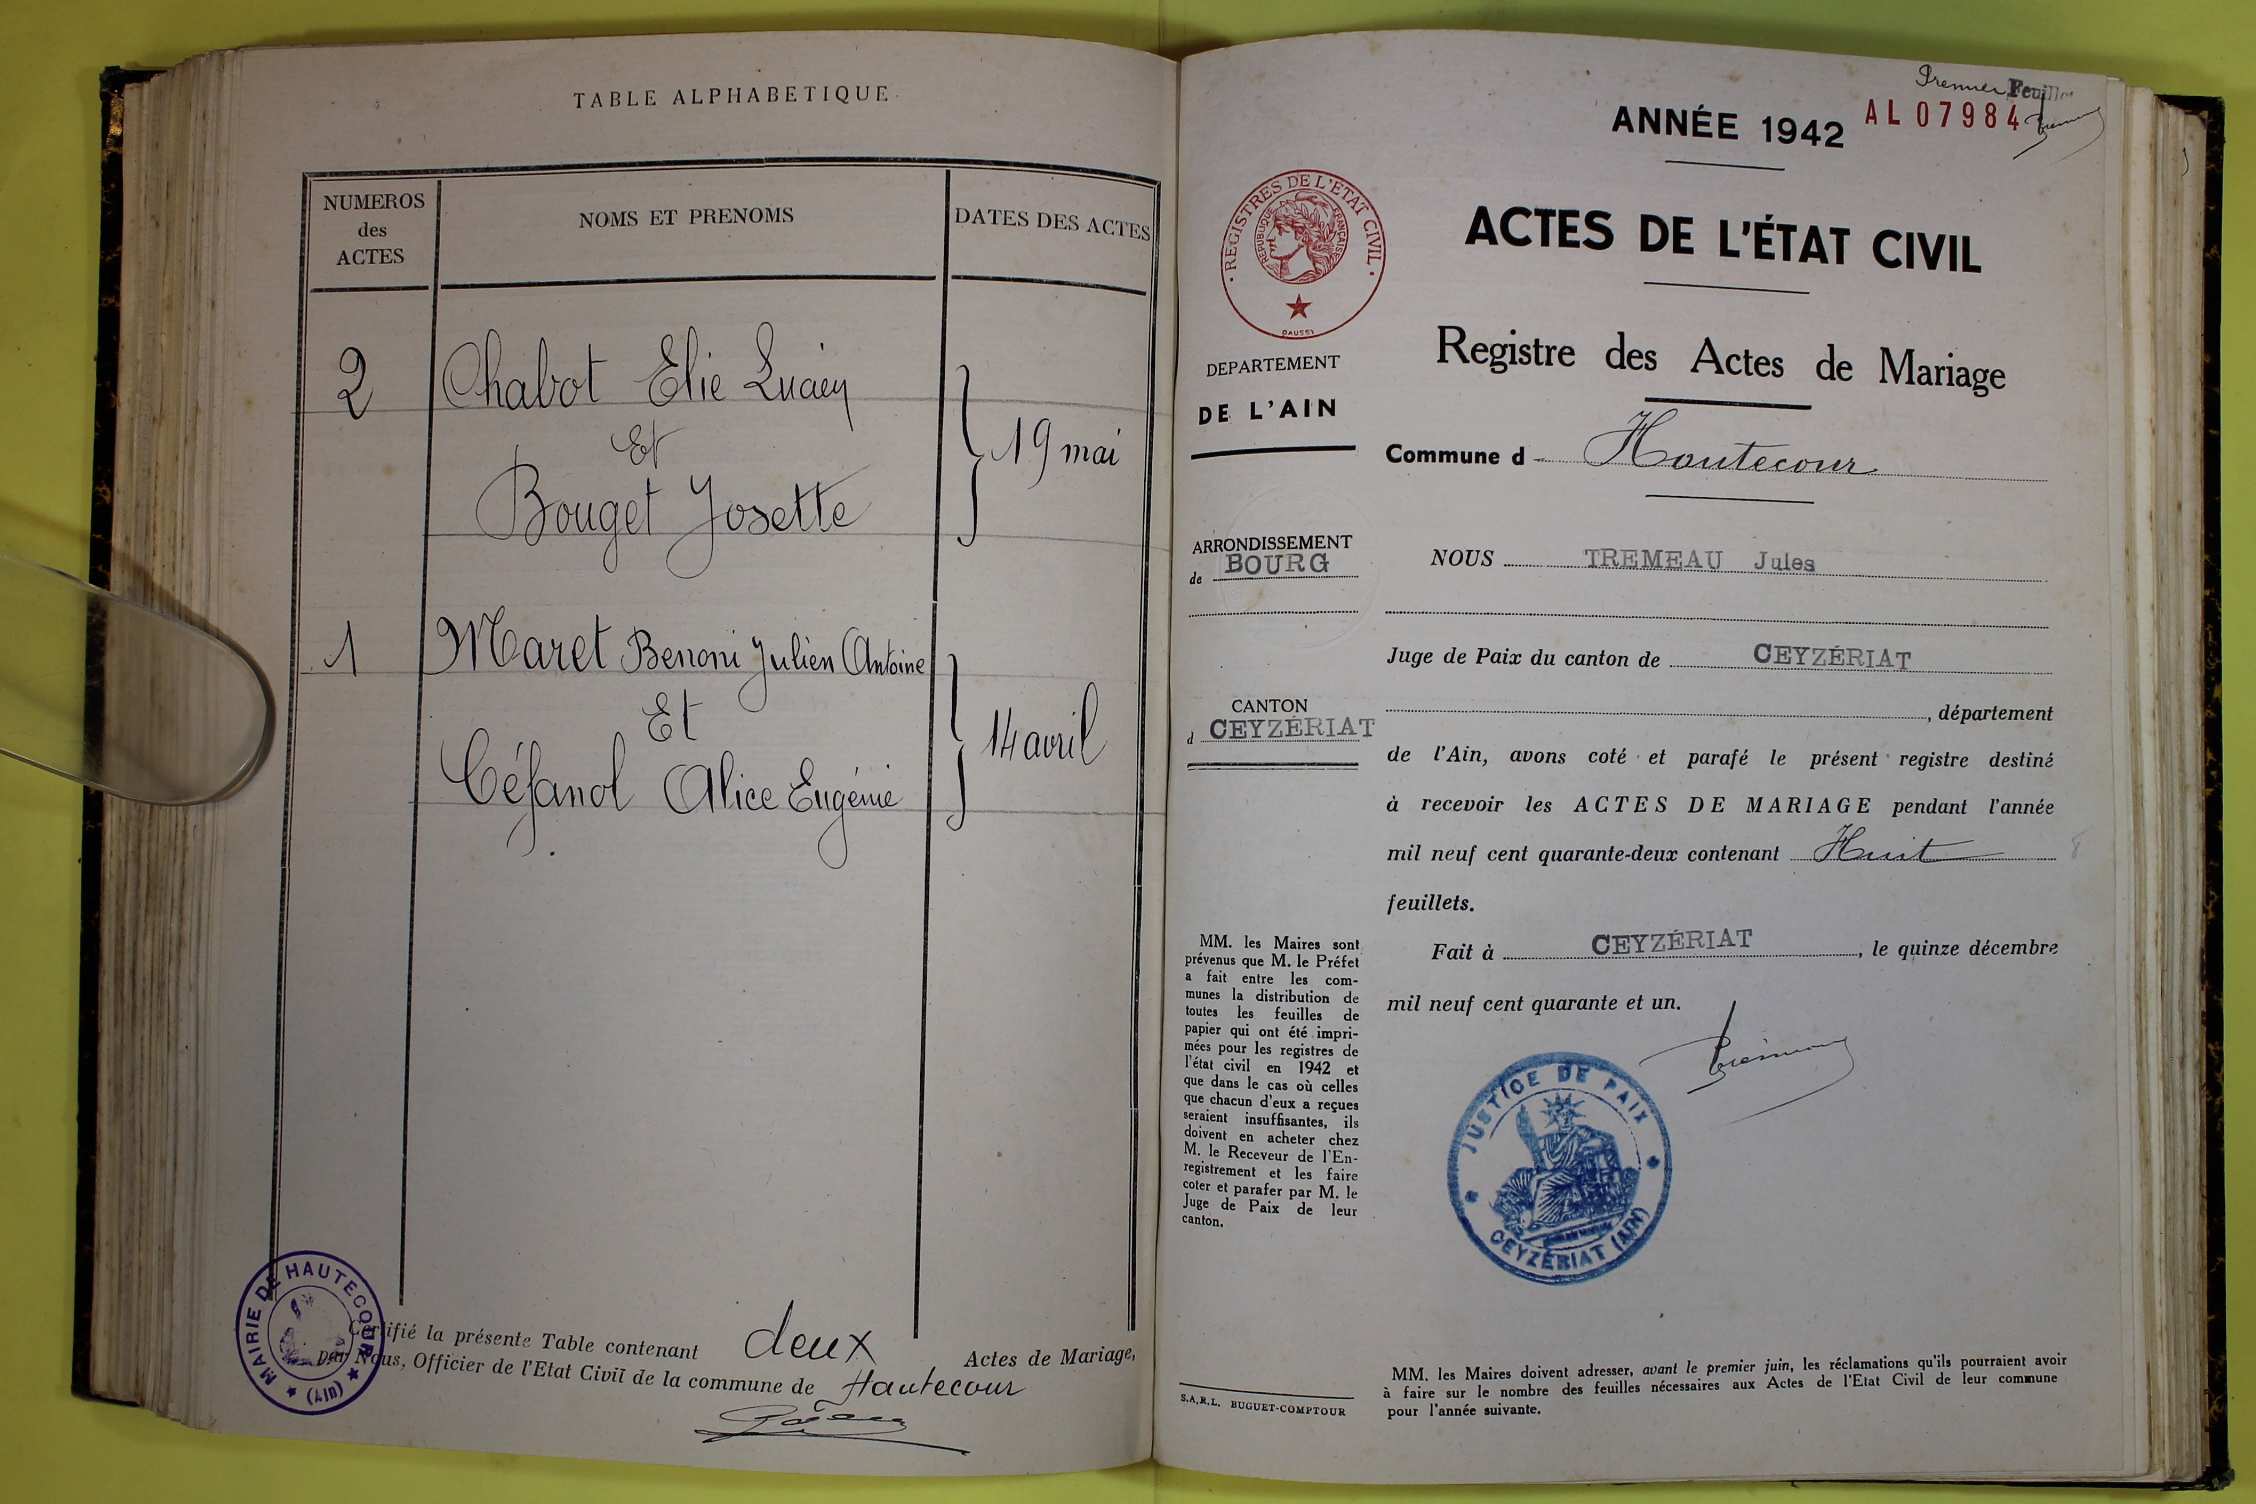 TABLE ALPHABETIQUE
NUMEROS
des
ACTES
NOMS ET PRENOMS
DATES DES ACTES
2
Chabot Elie Lucien
Et
Bouget Josette
19 mai
1
Maret Benoni Julien Antoine
Et
Céfanol Alice Eugénie
14 avril
MAIRIE DE HAUTECOUR
(AIN)
Certifié la présente Table contenant deux Actes de Mariage,
par Nous, Officier de l'Etat Civil de la commune de Hautecour
Premier Feuillet
ANNÉE 1942
AL 07984
REGISTRES DE L'ETAT CIVIL
REPUBLIQUE FRANÇAISE
DAUSSY
ACTES DE L'ÉTAT CIVIL
Registre des Actes de Mariage
DEPARTEMENT
DE L'AIN
Commune d Hautecour
ARRONDISSEMENT
de BOURG
NOUS TREMEAU Jules
Juge de Paix du canton de CEYZÉRIAT
CANTON
d CEYZÉRIAT
, département
de l'Ain, avons coté et parafé le présent registre destiné
à recevoir les ACTES DE MARIAGE pendant l'année
mil neuf cent quarante-deux contenant Huit 8
feuillets.
Fait à CEYZÉRIAT, le quinze décembre
mil neuf cent quarante et un.
MM. les Maires sont
prévenus que M. le Préfet
a fait entre les com-
munes la distribution de
toutes les feuilles de
papier qui ont été impri-
mées pour les registres de
l'état civil en 1942 et
que dans le cas où celles
que chacun d'eux a reçues
seraient insuffisantes, ils
doivent en acheter chez
M. le Receveur de l'En-
registrement et les faire
coter et parafer par M. le
Juge de Paix de leur
canton.
JUSTICE DE PAIX
CEYZÉRIAT (AIN)
S.A.R.L. BUGUET-COMPTOUR
MM. les Maires doivent adresser, avant le premier juin, les réclamations qu'ils pourraient avoir
à faire sur le nombre des feuilles nécessaires aux Actes de l'Etat Civil de leur commune
pour l'année suivante.